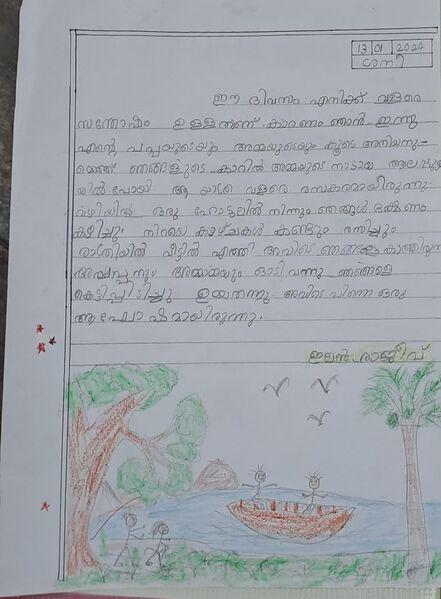 13 01 2024
ശനി
ഈ ദിവസം എനിക്ക് വളരെ
സന്തോഷം ഉള്ളതാണ് കാരണം ഞാൻ ഇന്നു
എന്റെ പപ്പയുടെയും അമ്മയുടെയും കൂടെ അനിയനു
ഞങ്ങളുടെ കാറിൽ അമ്മയുടെ നാടായ ആലപ്പുഴ
യിൽ പോയി. ആ യാത്ര വളരെ രസകരമായിരുന്നു.
വഴിയിൽ ഒരു ഹോട്ടലിൽ നിന്നും ഞങ്ങൾ ഭക്ഷണം
കഴിച്ചു. നിറയെ കാഴ്ചകൾ കണ്ടും രസിച്ചും
രാത്രിയിൽ വീട്ടിൽ എത്തി അവിടെ ഞങ്ങളെ കാത്തിരുന്ന
അപ്പപ്പനും അമ്മാമ്മയും ഓടി വന്നു ഞങ്ങളെ
കെട്ടിപ്പിടിച്ചു ഉമ്മതന്നു അവിടെ പിന്നെ ഒരു
ആഘോഷമായിരുന്നു.
ഇലൻ രാജീവ്